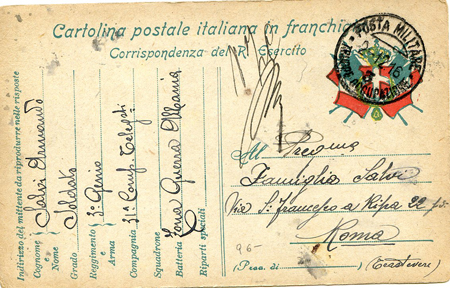 Cartolina postale italiana in franchigia
Corrispondenza del R. Esercito
POSTA MILITARE
16
Indirizzo del mittente da riprodurre nelle risposte
Cognome e Nome Salvi Armando
Grado Soldato
Reggimento e Arma 3º Genio
Compagnia 31ª Comp. Telegrafi
Squadrone
Batteria Zona Guerra Albania
Riparti speciali
Al Pregma
Famiglia Salvi
Via S. Francesco a Ripa 22 po
Roma
(Prov. di (Trastevere)
96-